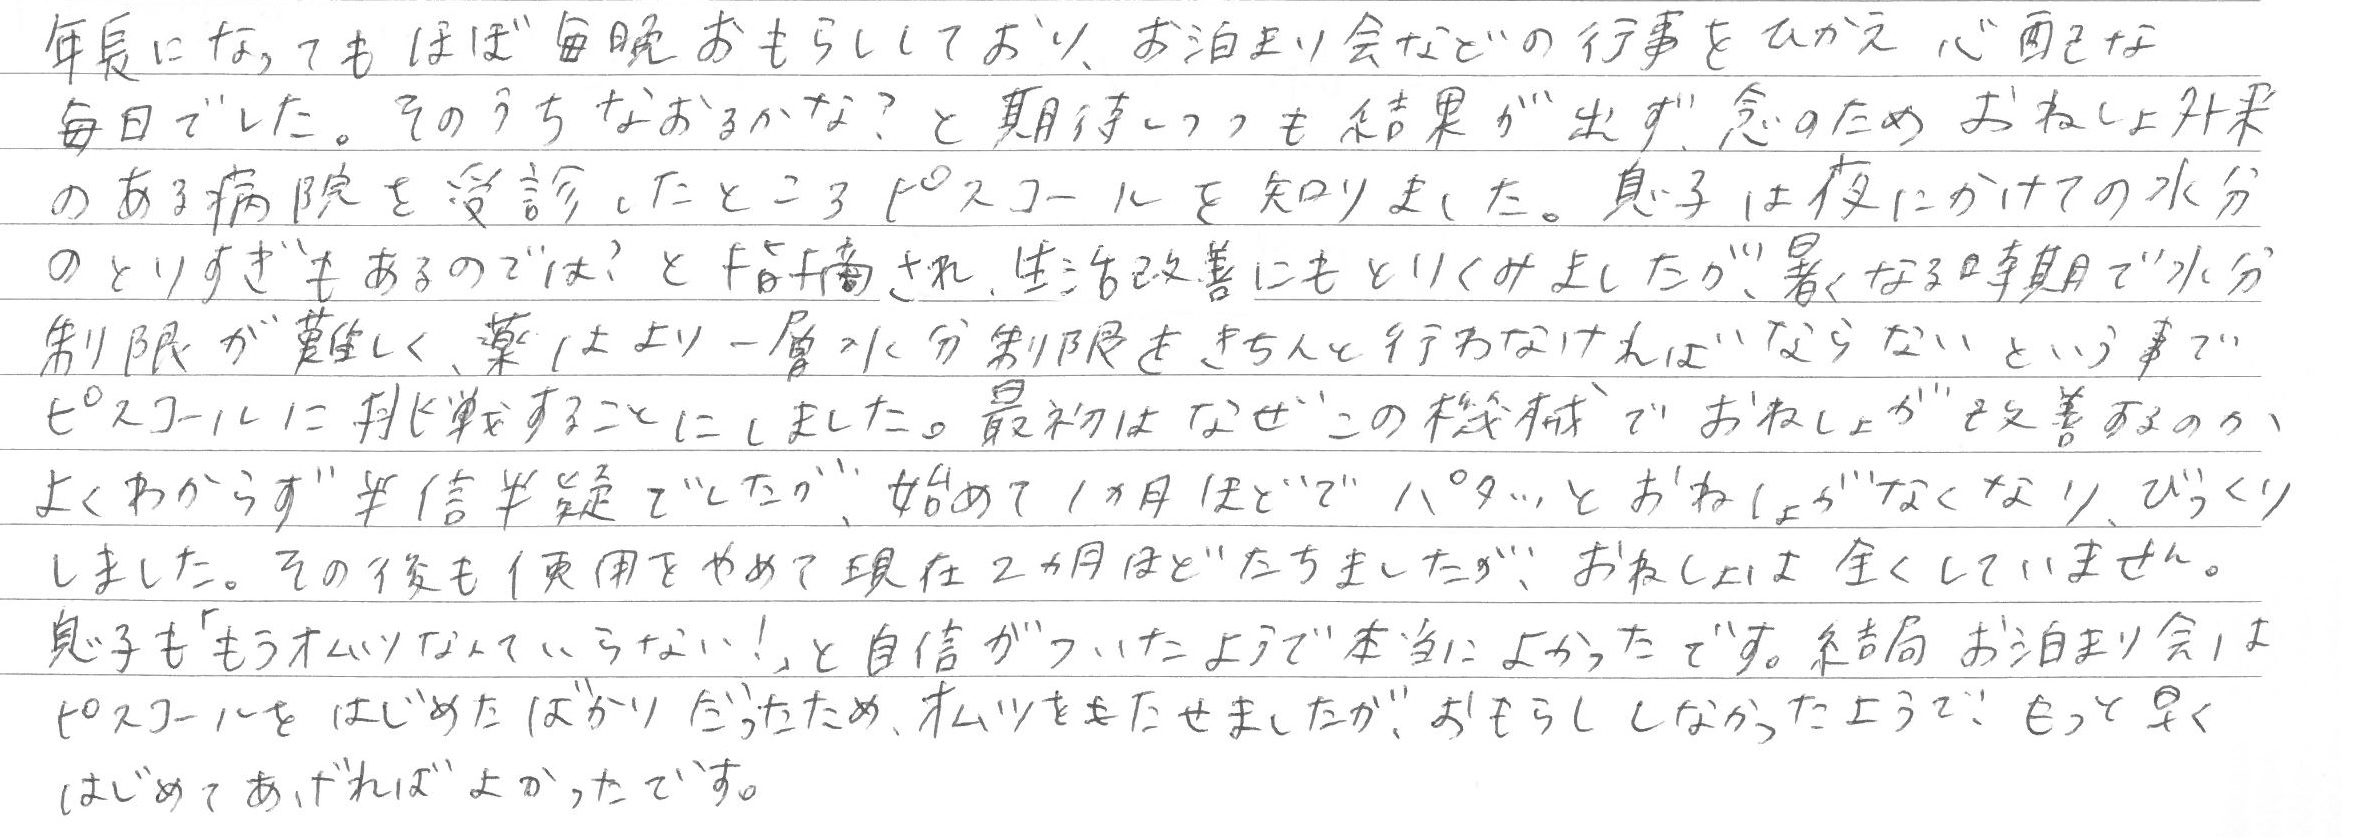 年長になってもほぼ毎晩おもらししており、お泊まり会などの行事をひかえ心配な
毎日でした。そのうちなおるかな?と期待しつつも結果が出ず、念のためおねしょ外来
のある病院を受診したところピスコールを知りました。息子は夜にかけての水分
のとりすぎもあるのでは?と指摘され、生活改善にもとりくみましたが、暑くなる時期で水分
制限が難しく、薬はより一層水分制限をきちんと行わなければならないという事で
ピスコールに挑戦することにしました。最初はなぜこの機械でおねしょが改善するのか、
よくわからず半信半疑でしたが、始めて1ヵ月ほどでパタッとおねしょがなくなり、びっくり
しました。その後も使用をやめて現在2ヵ月ほどたちましたが、おねしょは全くしていません。
息子も「もうオムツなんていらない!」と自信がついたようで本当によかったです。結局お泊まり会は
ピスコールをはじめたばかりだったため、オムツをもたせましたが、おもらししなかったようで、もっと早く
はじめてあげればよかったです。